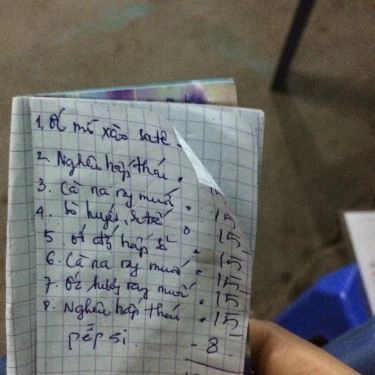 1. Ốc mỡ xào sate.
2. Nghêu hấp thái.
3. Cà na rang muối. 15
4. Sò huyết sa tế 15
5. ốc hấp sả. 15
6. Cà na rang muối. 15
7. Ốc hương rang muối. 15
8. Nghêu hấp thái. 15
pépsi. - 8